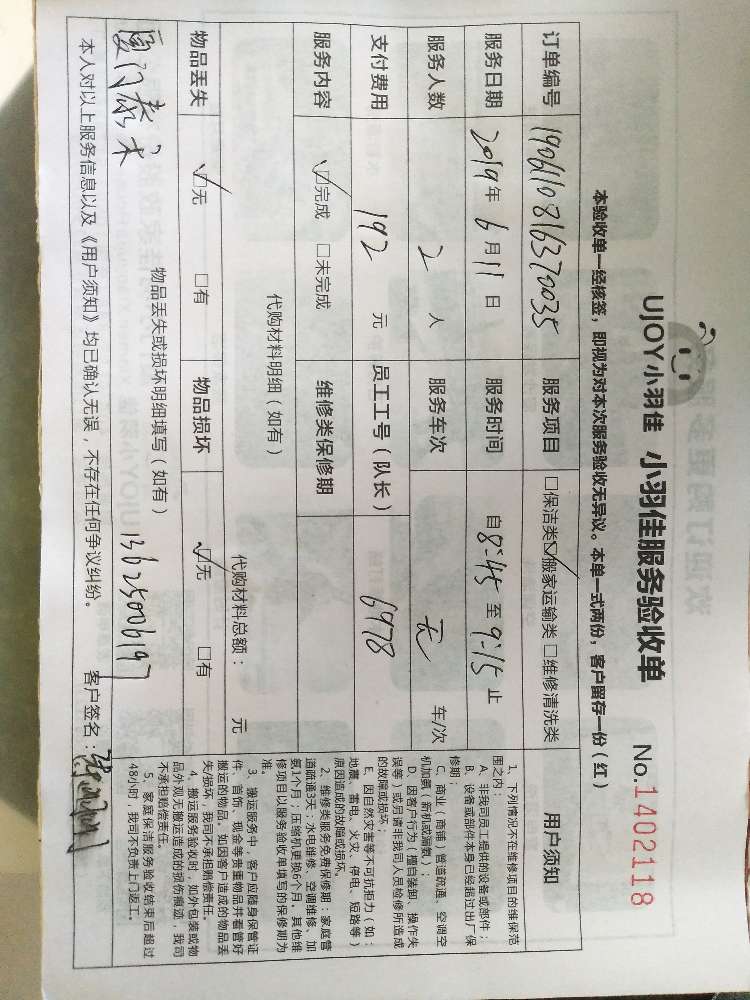 UJOY小羽佳 小羽佳服务验收单 No.1402118
本验收单一经核签，即视为对本次服务验收无异议。本单一式两份，客户留存一份（红）
订单编号 1906110816370035 服务项目 □保洁类☑搬家运输类 □维修清洗类
服务日期 2019年 6月11日 服务时间 自8:45至9:15止
服务人数 2 人 服务车次 无 车/次
支付费用 192 元 员工工号（队长） 6978
服务内容 ☑完成 □未完成 维修类保修期
代购材料明细（如有） 代购材料总额： 元
物品丢失 ☑无 □有 物品损坏 ☑无 □有
物品丢失或损坏明细填写（如有）
厦门 13625006197
本人对以上服务信息以及《用户须知》均已确认无误，不存在任何争议纠纷。 客户签名：
用户须知
1、下列情况不在维修项目的维保范
围之内：
A、非我司员工提供的设备或部件；
B、设备或部件本身已经超过出厂保
修期；
C、商业（商铺）管道疏通、空调空
机加氨（新机或漏氨）；
D、因客户行为（擅自装卸、操作失
误等）或另请非我司人员检修所造成
的故障或损坏；
E、因自然灾害等不可抗拒力（如：
地震、雷电、火灾、停电、短路等）
原因造成的故障或损坏。
2、维修类服务免费保修期：家庭管
道疏通3天；水电维修、空调维修、加
氨1个月；压缩机更换6个月，其他维
修项目以服务验收单填写的保修期为
准。
3、搬运服务中，客户应随身保管证
件、首饰、现金等贵重物品并看管好
搬运的物品。如因客户造成的物品丢
失/损坏，我司不承担赔偿责任。
4、搬运服务验收时，如外包装或物
品外观无搬运造成的损伤痕迹，我司
不承担赔偿责任。
5、家庭保洁服务验收结束后超过
48小时，我司不负责上门返工。